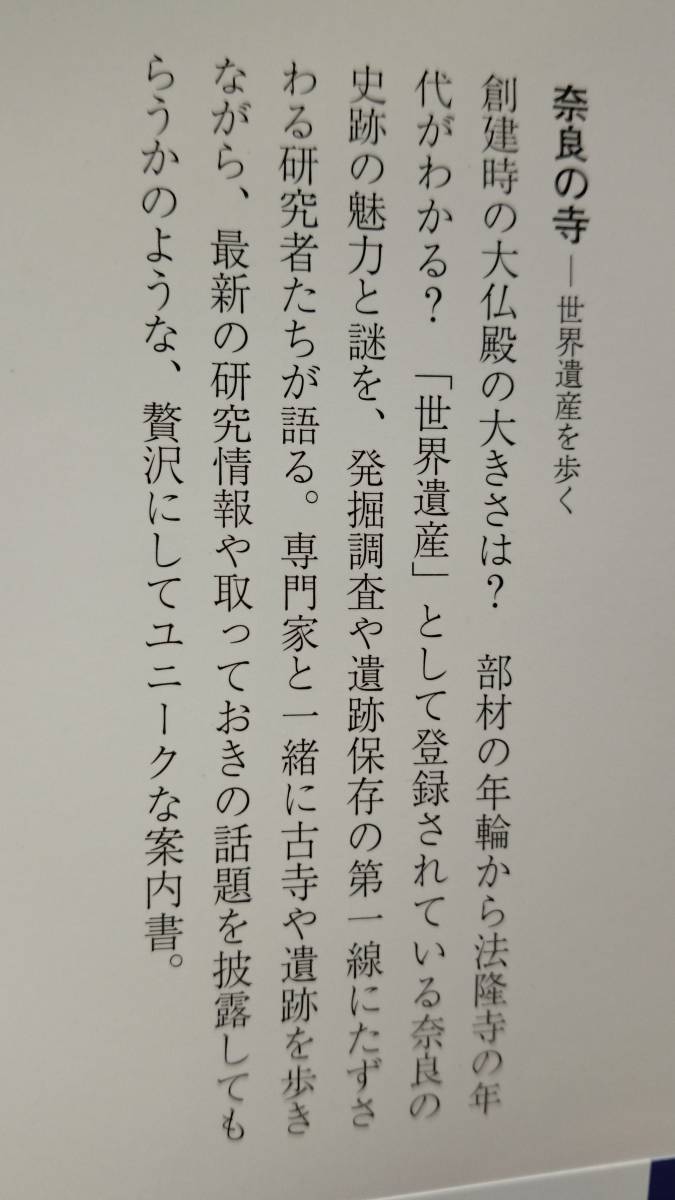 奈良の寺―世界遺産を歩く
創建時の大仏殿の大きさは？　部材の年輪から法隆寺の年
代がわかる？　「世界遺産」として登録されている奈良の
史跡の魅力と謎を、発掘調査や遺跡保存の第一線にたずさ
わる研究者たちが語る。専門家と一緒に古寺や遺跡を歩き
ながら、最新の研究情報や取っておきの話題を披露しても
らうかのような、贅沢にしてユニークな案内書。